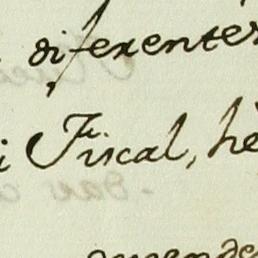 diferentes
i Fiscal, he